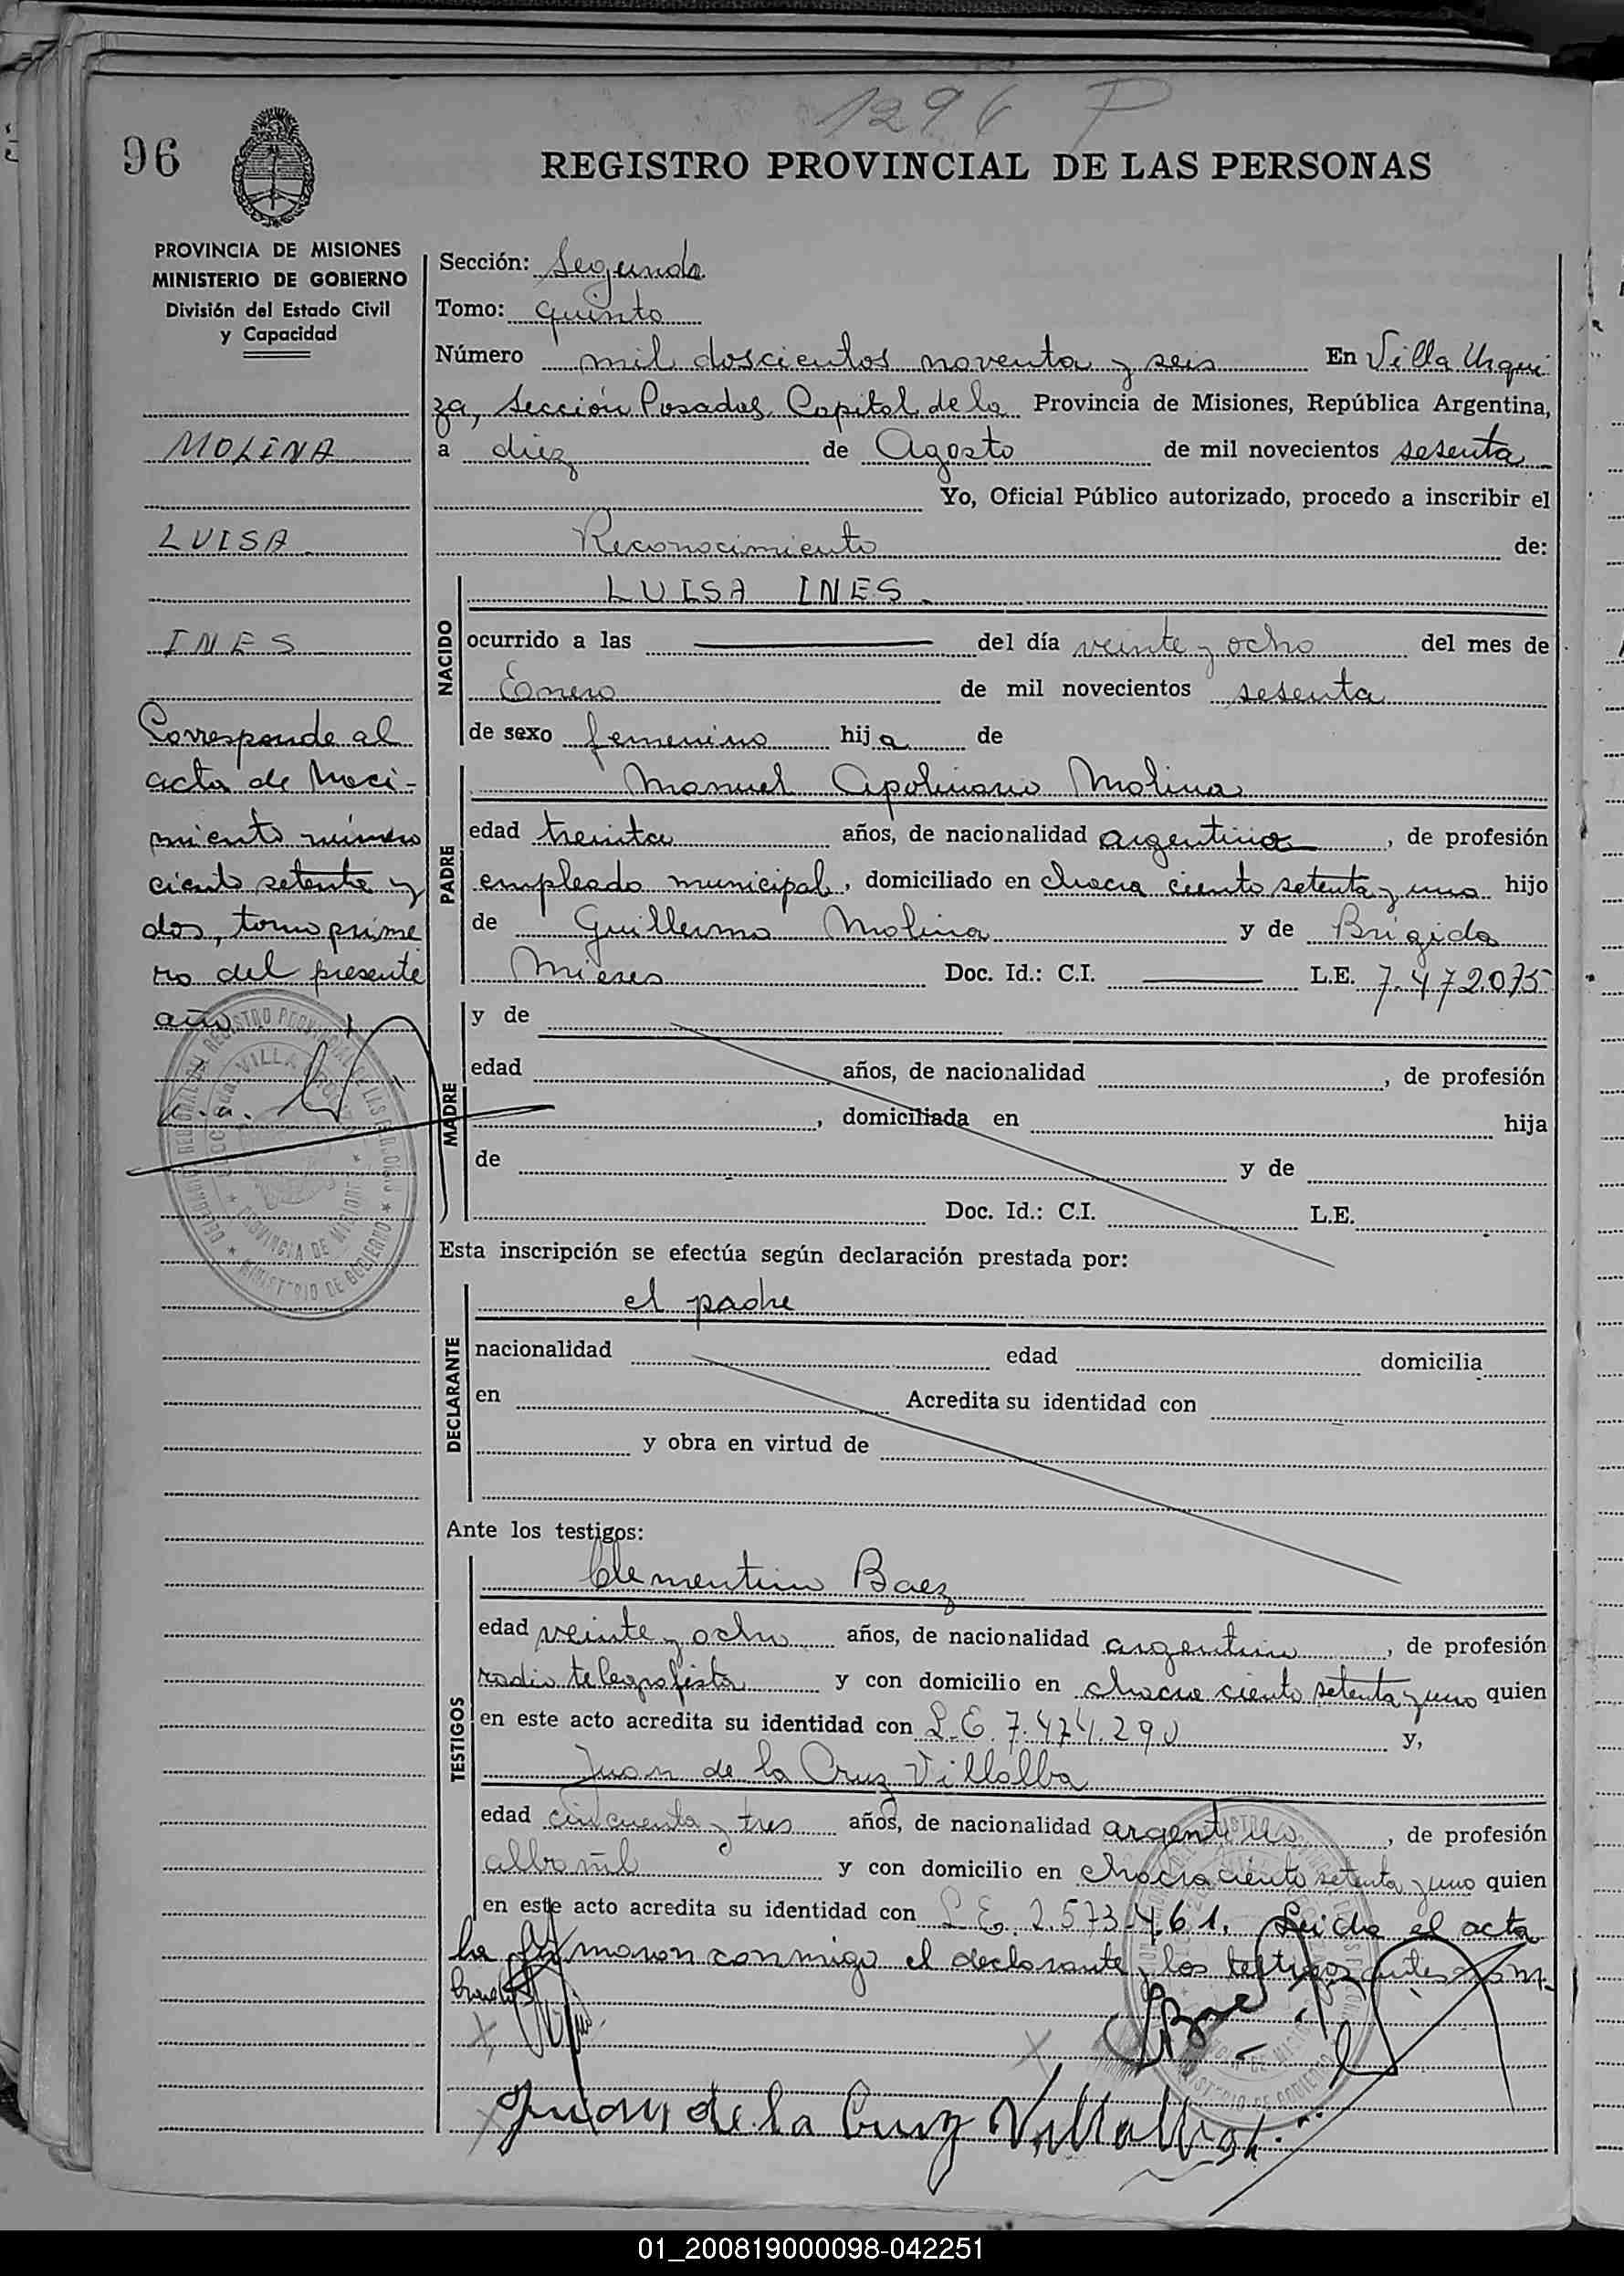 1296 P
96
REGISTRO PROVINCIAL DE LAS PERSONAS
PROVINCIA DE MISIONES
MINISTERIO DE GOBIERNO
División del Estado Civil
y Capacidad
MOLINA
LUISA
INES
Corresponde al
acta de Naci-
miento número
ciento setenta y
dos, tomo prime
ro del presente
año
Sección: Segunda
Tomo: quinto
Número mil doscientos noventa y seis En Villa Urqui
za, Sección Posadas Capital de la Provincia de Misiones, República Argentina,
a diez de Agosto de mil novecientos sesenta
Yo, Oficial Público autorizado, procedo a inscribir el
Reconocimiento de:
NACIDO
LUISA INES
ocurrido a las del día veinte y ocho del mes de
Enero de mil novecientos sesenta
de sexo femenino hija de
PADRE
Manuel Apolinario Molina
edad treinta años, de nacionalidad argentina, de profesión
empleado municipal, domiciliado en chacra ciento setenta y uno hijo
de Guillermo Molina y de Brigida
Mieres Doc. Id.: C.I. L.E. 7.472.075
MADRE
y de
edad años, de nacionalidad , de profesión
, domiciliada en hija
de y de
Doc. Id.: C.I. L.E.
Esta inscripción se efectúa según declaración prestada por:
DECLARANTE
el padre
nacionalidad edad domicilia
en Acredita su identidad con
y obra en virtud de
Ante los testigos:
TESTIGOS
Clementino Baez
edad veinte y ocho años, de nacionalidad argentino, de profesión
radio telegrafista y con domicilio en chacra ciento setenta y uno quien
en este acto acredita su identidad con L.E. 7.474.290 y,
Juan de la Cruz Villalba
edad cincuenta y tres años, de nacionalidad argentino, de profesión
albañil y con domicilio en chacra ciento setenta y uno quien
en este acto acredita su identidad con L.E. 2.573.461. Leida el acta
la firmaron conmigo el declarante y los testigos antes nom-
brados
Juan de la Cruz Villalba
01_200819000098-042251